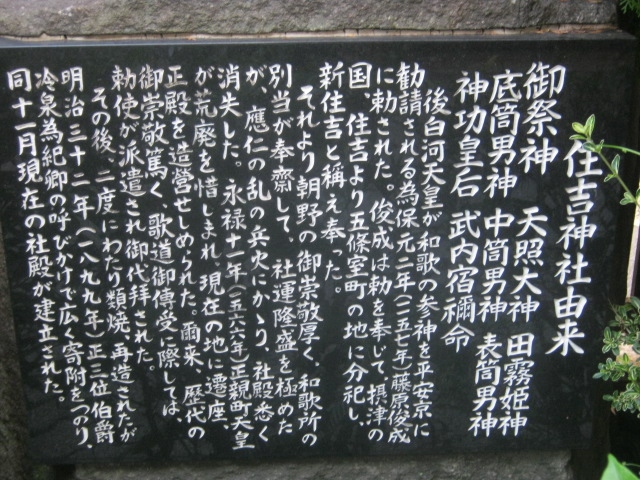 住吉神社由来
御祭神 天照大神 田霧姫神
底筒男神 中筒男神 表筒男神
神功皇后 武内宿禰命
後白河天皇が和歌の参神を平安京に
勧請される為保元二年(一一五七年)藤原俊成
に勅された。俊成は勅を奉じて、摂津の
国、住吉より五條室町の地に分祀し、
新住吉と稱え奉った。
それより朝野の御崇敬厚く、和歌所の
別当が奉齋して、社運隆盛を極めた
が、應仁の乱の兵火にかゝり、社殿悉く
消失した。永禄十一年(一五六八年)正親町天皇
が荒廃を惜しまれ、現在の地に遷座、
正殿を造營せしめられた。爾来、歴代の
御崇敬篤く、歌道御傳受に際しては、
勅使が派遣され御代拝された。
その後、二度にわたり類焼、再造されたが
明治三十二年(一八九九年)正三位伯爵
冷泉為紀卿の呼びかけで広く寄附をつのり、
同十一月現在の社殿が建立された。